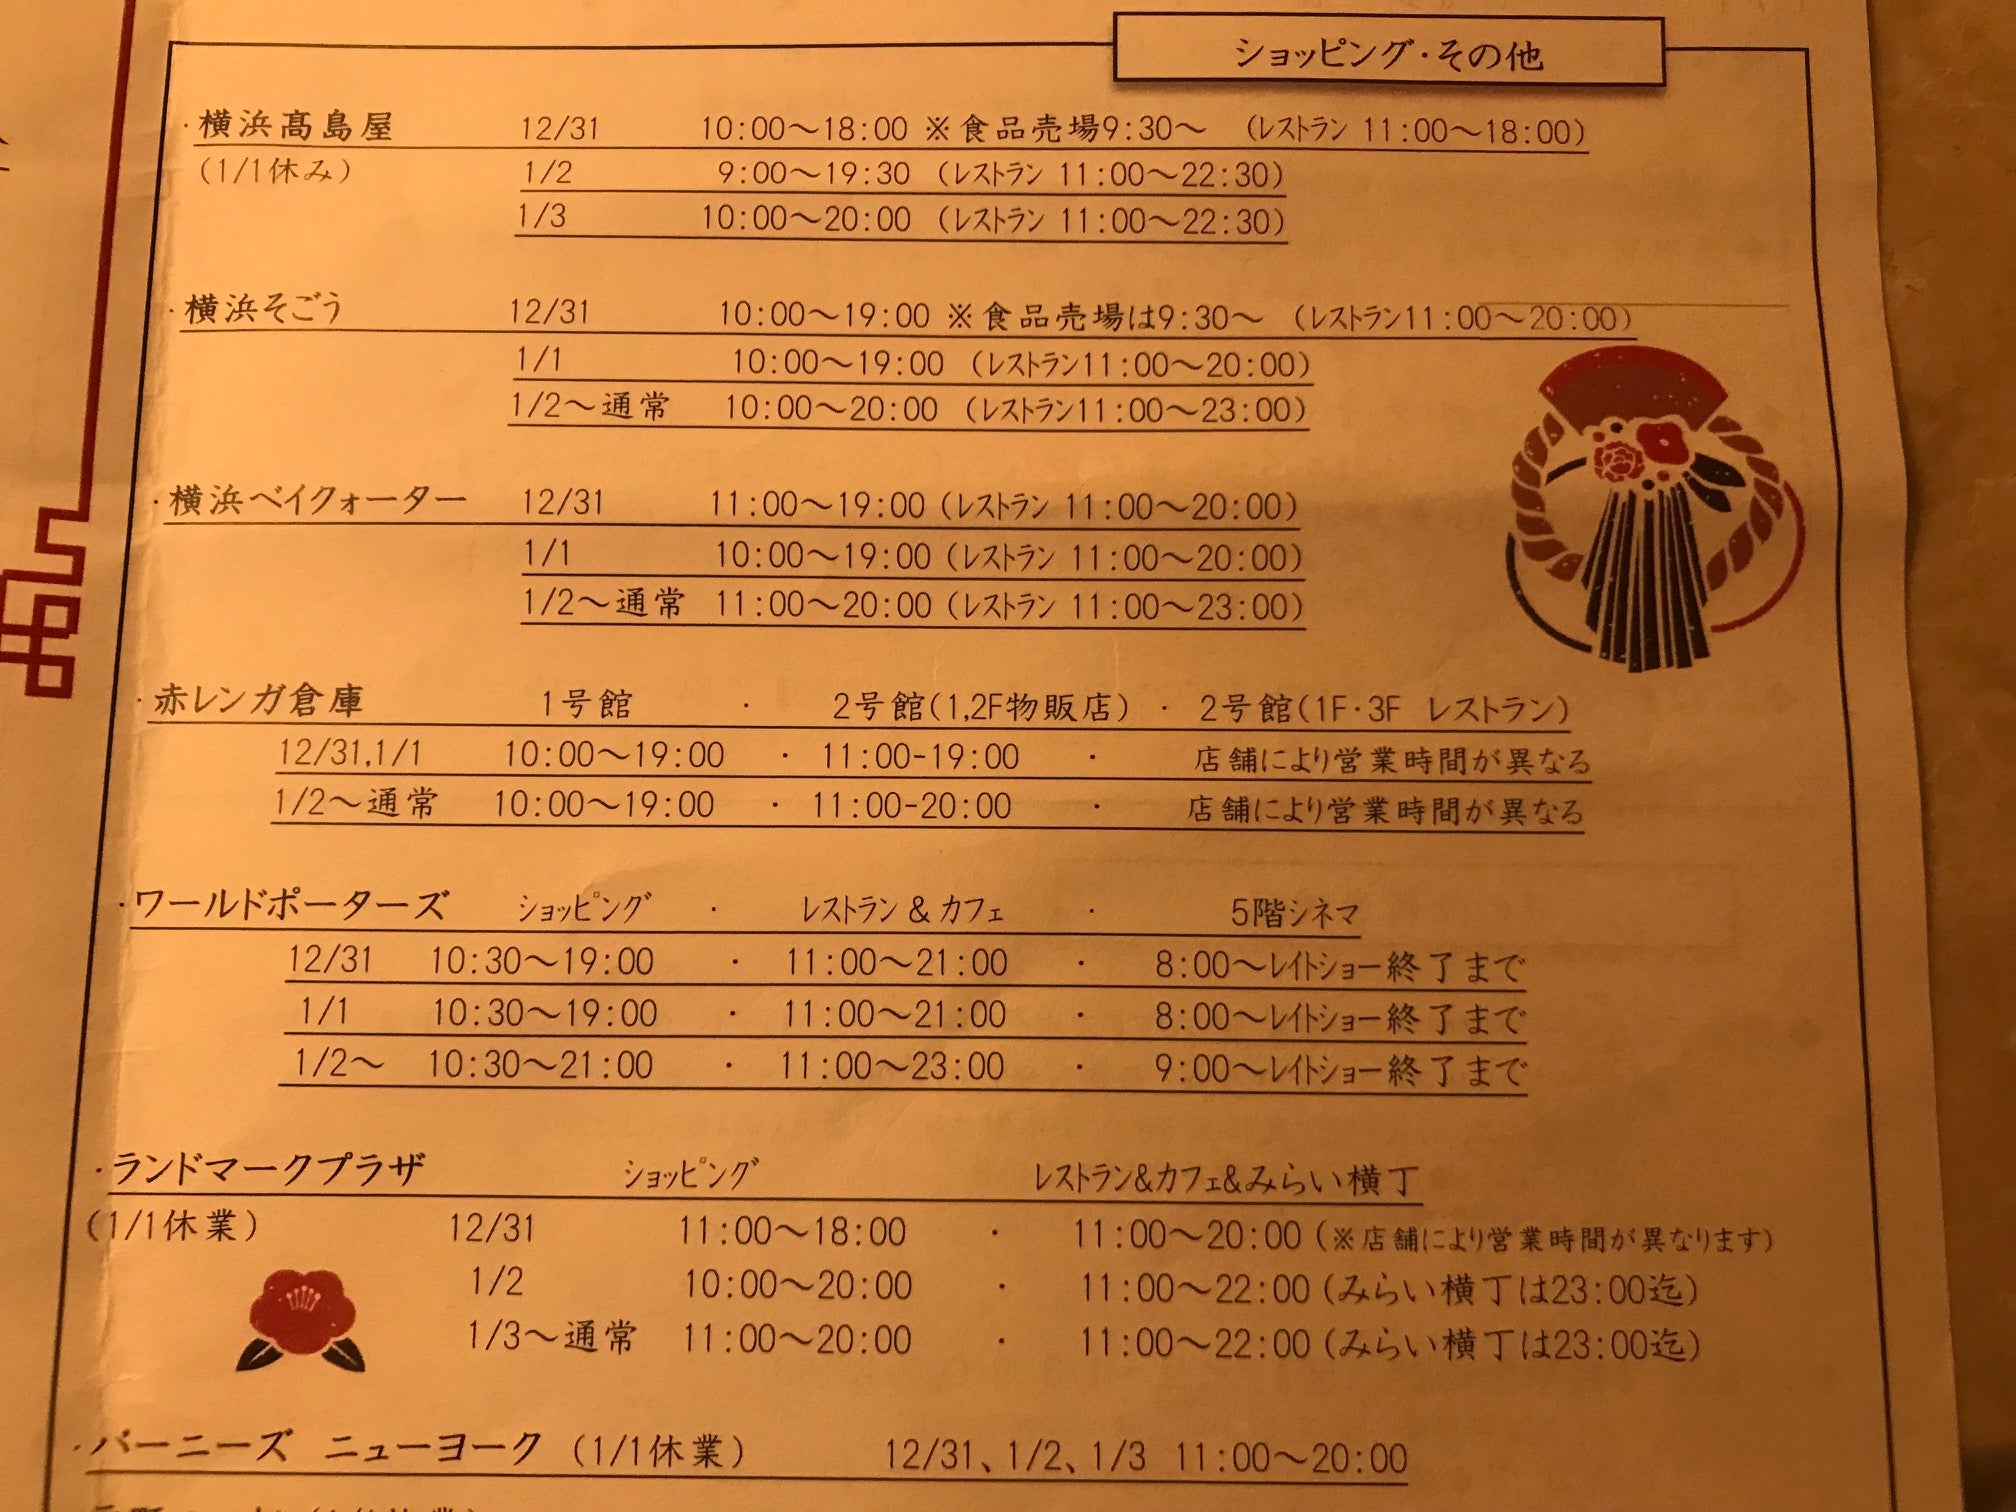 ショッピング・その他
・横浜髙島屋 12/31 10:00～18:00 ※食品売場9:30～ (レストラン 11:00～18:00)
(1/1休み) 1/2 9:00～19:30 (レストラン 11:00～22:30)
1/3 10:00～20:00 (レストラン 11:00～22:30)
・横浜そごう 12/31 10:00～19:00 ※食品売場は9:30～ (レストラン11:00～20:00)
1/1 10:00～19:00 (レストラン11:00～20:00)
1/2～通常 10:00～20:00 (レストラン11:00～23:00)
・横浜ベイクォーター 12/31 11:00～19:00 (レストラン 11:00～20:00)
1/1 10:00～19:00 (レストラン 11:00～20:00)
1/2～通常 11:00～20:00 (レストラン 11:00～23:00)
・赤レンガ倉庫 1号館 ・ 2号館(1,2F物販店) ・ 2号館(1F・3F レストラン)
12/31,1/1 10:00～19:00 ・ 11:00-19:00 ・ 店舗により営業時間が異なる
1/2～通常 10:00～19:00 ・ 11:00-20:00 ・ 店舗により営業時間が異なる
・ワールドポーターズ ショッピング ・ レストラン & カフェ ・ 5階シネマ
12/31 10:30～19:00 ・ 11:00～21:00 ・ 8:00～レイトショー終了まで
1/1 10:30～19:00 ・ 11:00～21:00 ・ 8:00～レイトショー終了まで
1/2～ 10:30～21:00 ・ 11:00～23:00 ・ 9:00～レイトショー終了まで
・ランドマークプラザ ショッピング レストラン&カフェ&みらい横丁
(1/1休業) 12/31 11:00～18:00 ・ 11:00～20:00 (※店舗により営業時間が異なります)
1/2 10:00～20:00 ・ 11:00～22:00 (みらい横丁は23:00迄)
1/3～通常 11:00～20:00 ・ 11:00～22:00 (みらい横丁は23:00迄)
・バーニーズ ニューヨーク (1/1休業) 12/31、1/2、1/3 11:00～20:00